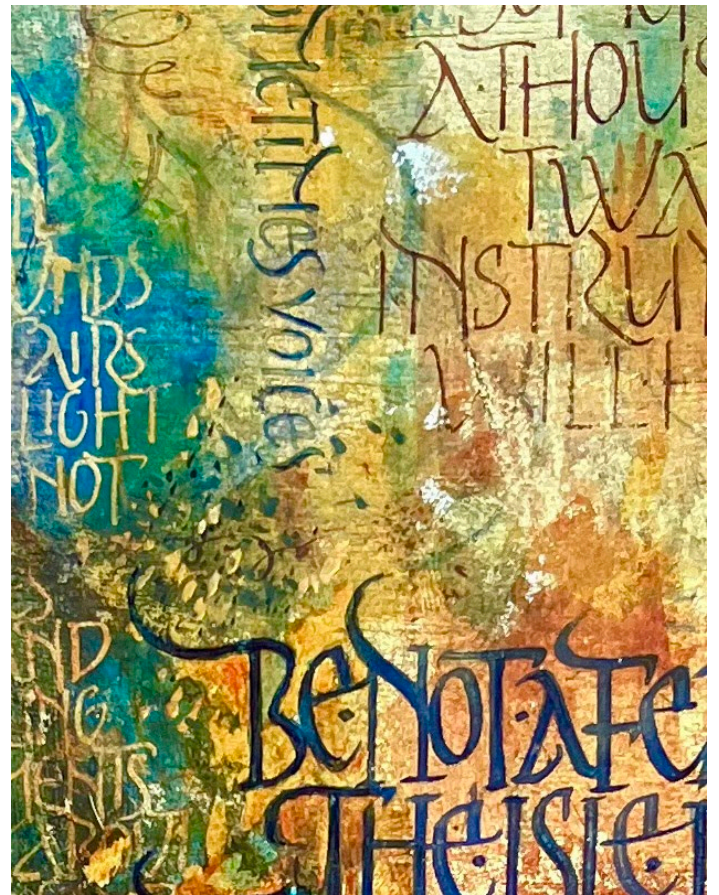 UNDS
AIRS
LIGHT
NOT
ND
NG
MENTS
METIMES VOICES
ATHOUS
TWA
INSTRUM
WILL H
BE·NOT·AFEA
THE·ISLE